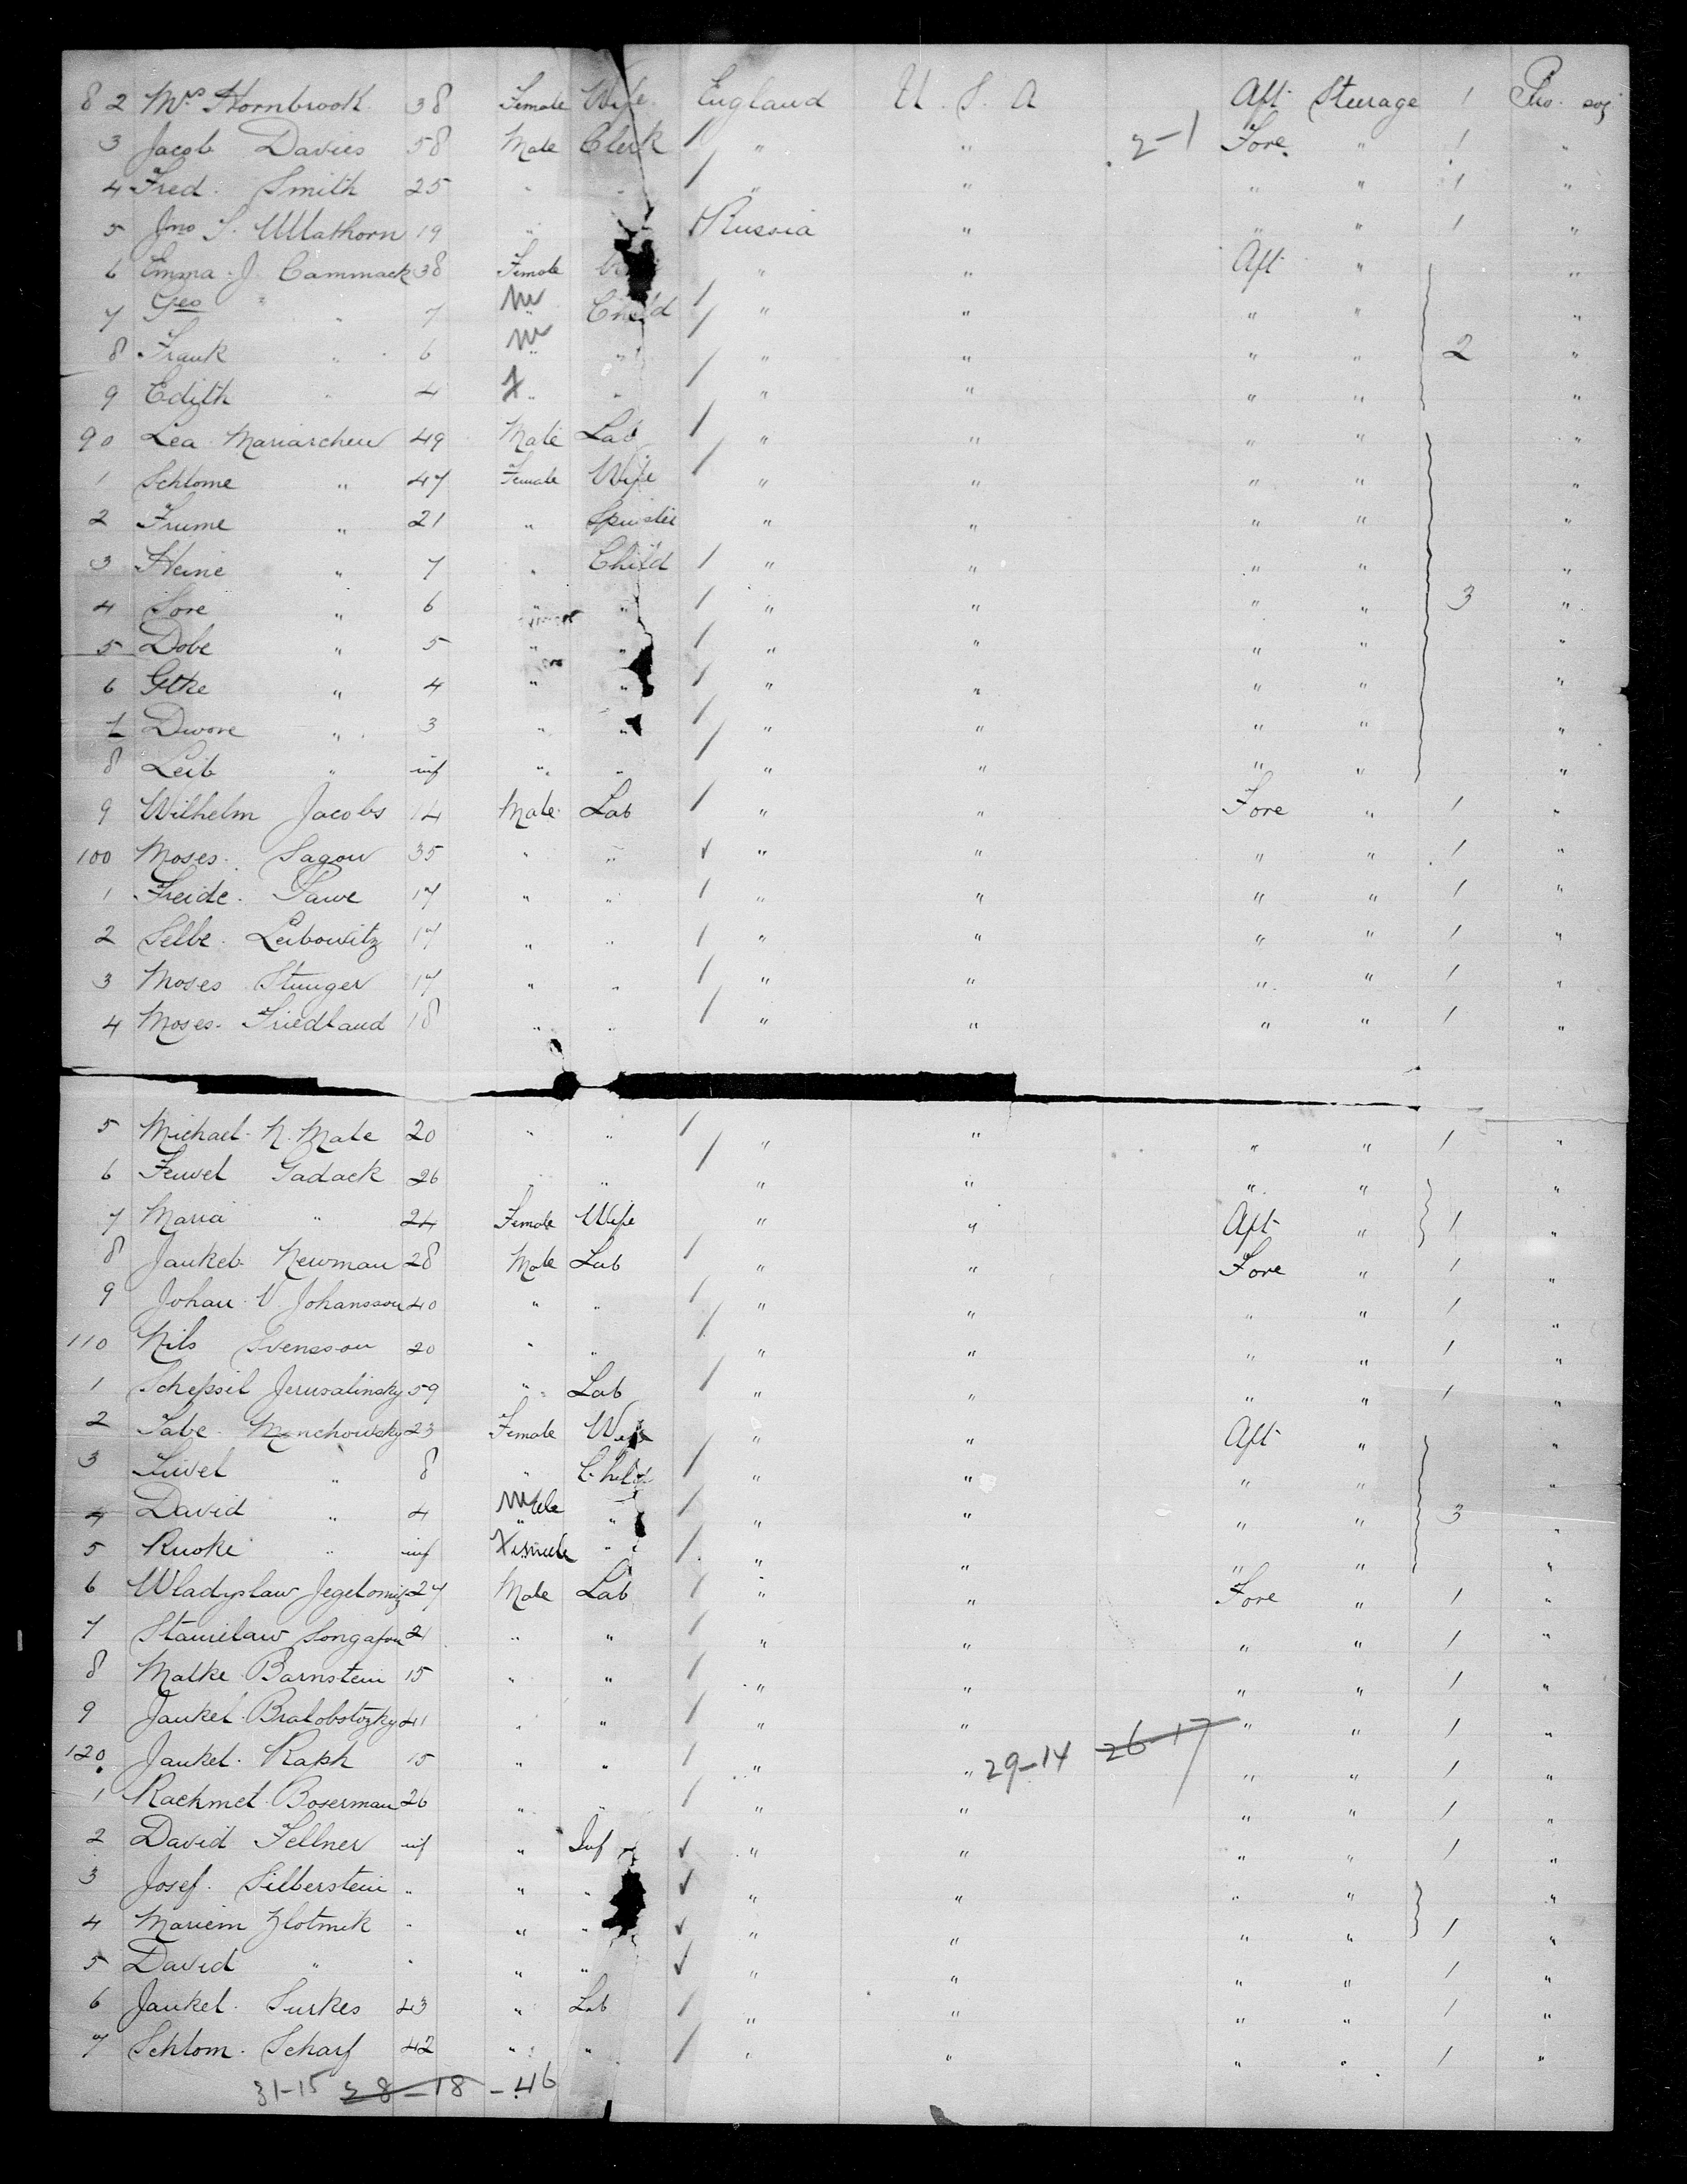 82 Mrs Hornbrook 38 Female Wife England U. S. A Aft Steurage 1 Pro. soj
3 Jacob Davies 58 Male Clerk / " " 2-1 Fore " 1 "
4 Fred. Smith 25 " " / " " " " 1 "
5 Jno S. 19 " / Russia " " " 1 "
6 Emma. J. Cammack 38 Female " " Aft " "
7 Geo " " 7 M Child / " " " " "
8 Frank " 6 M " / " " " " 2 "
9 Edith " 4 F " / " " " " "
90 Lea Mariaschew 49 Male Lab / " " " " "
1 Schlome " 47 Female Wife / " " " " "
2 Frume " 21 " Spinster " " " " "
3 Heine " 7 " Child / " " " " "
4 Sore " 6 " " / " " " " 3 "
5 Dobe " 5 " " / " " " " "
6 Gtke " 4 " " / " " " " "
7 Dwore " 3 " " / " " " " "
8 Leib " inf " " / " " " " "
9 Wilhelm Jacobs 14 Male Lab / " " Fore " 1 "
100 Moses. Sagow 35 " " ✓ " " " " 1 "
1 Freide. Sawe 17 " " / " " " " 1 "
2 Selbe. Leibowitz 17 " " / " " " " 1 "
3 Moses Stunger 17 " " / " " " " 1 "
4 Moses. Friedland 18 " " / " " " " 1 "
5 Michael. N. Male 20 " " / " " " " 1 "
6 Feuvel Gadack 26 " " / " " " " "
7 Maria " 24 Female Wife " " Aft " 1 "
8 Jankeb Newman 28 Male Lab / " " Fore " 1 "
9 Johan. V. Johansson 40 " " / " " " " 1 "
110 Nils Svensson 20 " " / " " " " 1 "
1 Schepsil Jerusalinsky 59 " Lab / " " " " 1 "
2 Tabe. Menchowsky 23 Female Wife " " Aft " "
3 " 8 " Child / " " " " "
4 David " 4 Male " / " " " " 3 "
5 Ruoke " inf Female " / " " " " "
6 Wladyslaw 27 Male Lab / " " Fore " 1 "
7 Stanislaw 21 " " / " " " " 1 "
8 Malke Barnstein 15 " " / " " " " 1 "
9 Jankel. Bralobstozky 41 " " / " " " " 1 "
120 Jankel. Raph 15 " " / " " 29-14 26-17 " " 1 "
1 Rachmel. Boserman 26 " " / " " " " 1 "
2 David Fellner inf " Inf ✓ " " " " 1 "
3 Josef. Silberstein " " " ✓ " " " " "
4 Mariem Zlotnik " " " ✓ " " " " 1 "
5 David " " " " ✓ " " " " 1 "
6 Jankel. Surkes 43 " Lab / " " " " 1 "
7 Schlom. Scharf 42 " " / " " " " 1 "
31-15 28-18 - 46